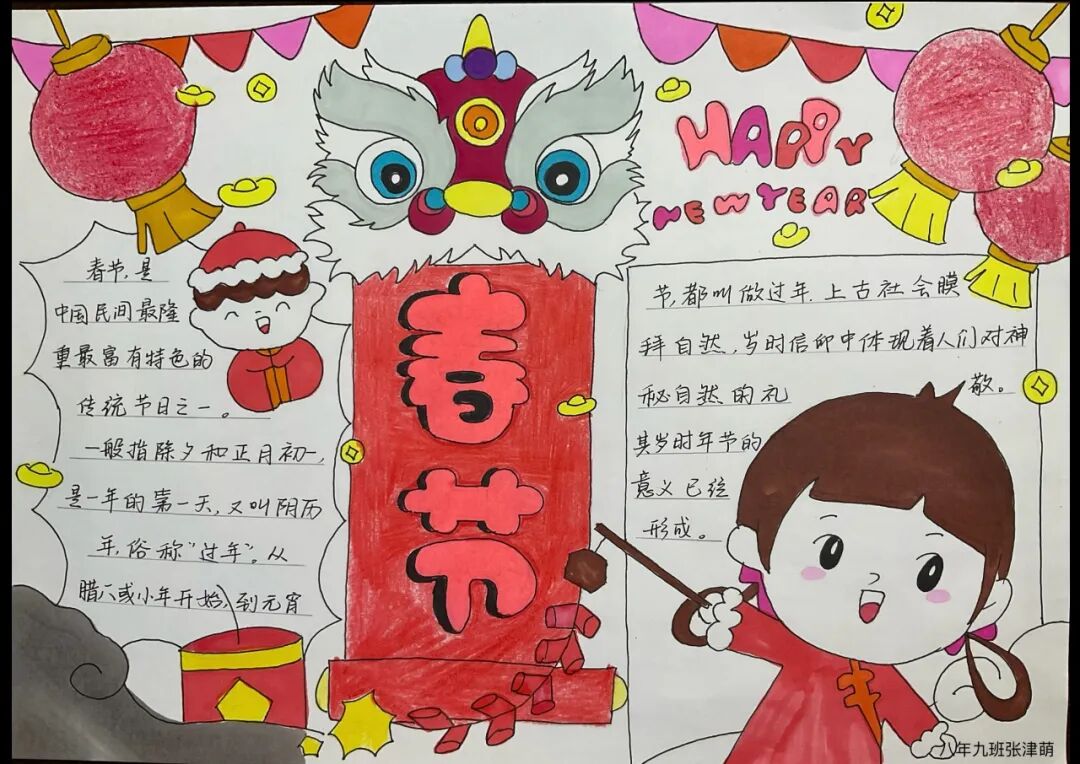 HAPPY
NEW YEAR
春节
春节,是
中国民间最隆
重最富有特色的
传统节日之一。
一般指除夕和正月初一,
是一年的第一天,又叫阴历
年,俗称"过年"。从
腊八或小年开始,到元宵
节,都叫做过年.上古社会膜
拜自然,岁时信仰中体现着人们对神
秘自然的礼敬。
其岁时年节的
意义已经
形成。
八年九班张津萌